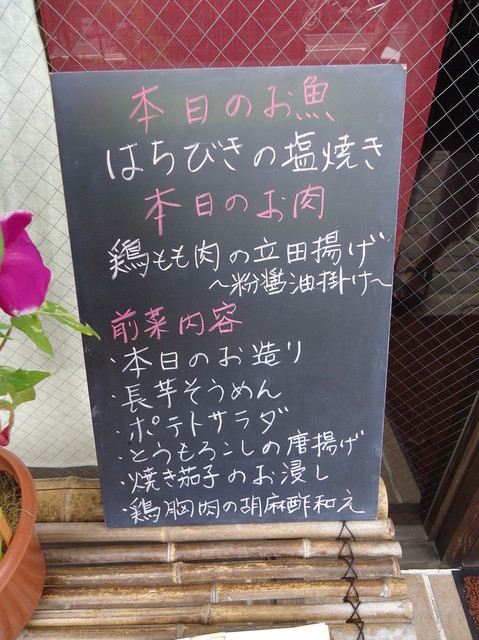 本日のお魚
はちびきの塩焼き
本日のお肉
鶏もも肉の立田揚げ
〜粉醤油掛け〜
前菜内容
・本日のお造り
・長芋そうめん
・ポテトサラダ
・とうもろこしの唐揚げ
・焼き茄子のお浸し
・鶏胸肉の胡麻酢和え